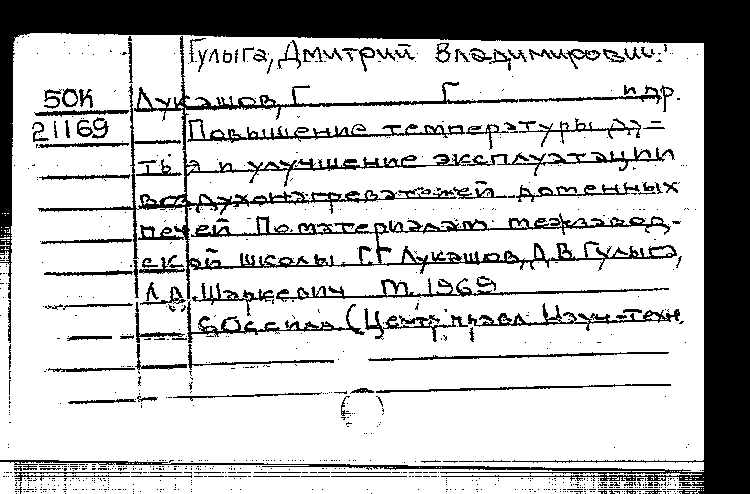 Гулыга, Дмитрий Владимирович.
50К Лукашов, Г Г и др.
21169 Повышение температуры ду=
тья и улучшение эксплуатации
воздухонагревателей доменных
печей По материалам межзавод-
ской школы. Г.Г Лукашов, Д.В Гулыга,
Л.В. Шаркевич М. 1969
60с с илл (Центр. правл. Науч-техн.